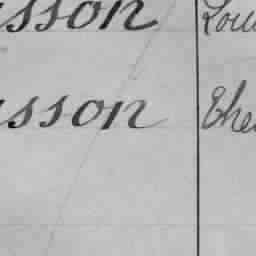 sson Lou
sson Ehe